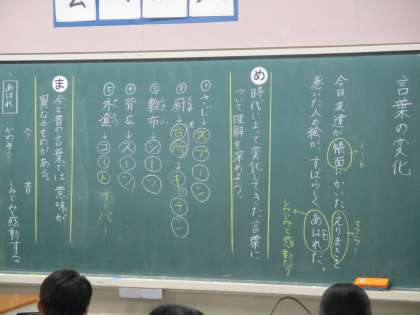 言葉の変化
今日友達が帳面にかいた、えりまきを
ノート
マフラー
巻いた人の絵が、すばらしくあはれだ。
め
時代によって変化してきた言葉に
ついて理解を深めよう。
①さじ→スプーン
②厨→台所→キッチン
③敷布→シーツ
④背広→スーツ
⑤外套→コート オーバー
ま
今と昔の言葉では意味が
異なるものがある。
今 昔
あはれ
かわいそう しみじみと感動する